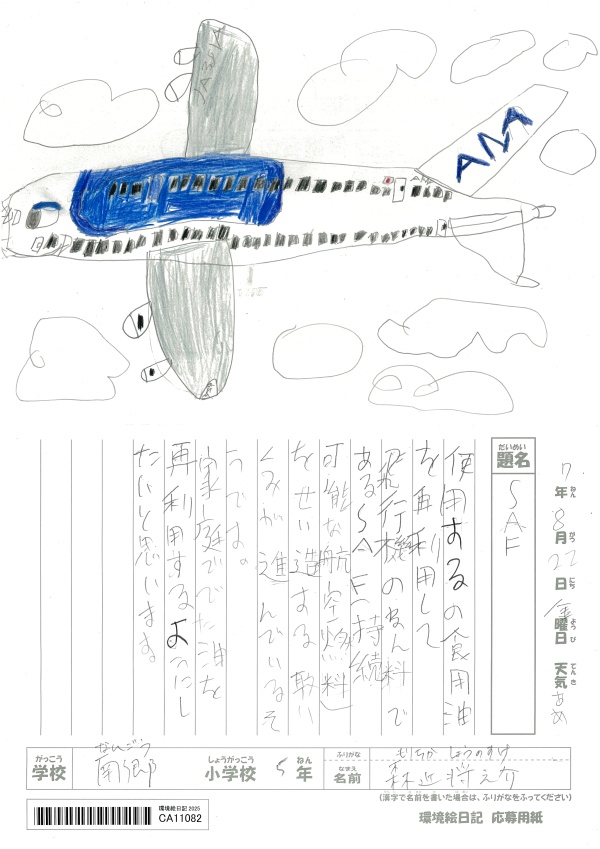 ANA
ANA
7年8月22日金曜日 天気あめ
ねん がつ にち ようび てんき
だいめい
題名
SAF
使用するの食用油
を再利用して
飛行機のねん料で
あるSAF(持続
可能な航空燃料)
をせい造する取い
くみが進んでいるそ
うです。
家庭ででた油を
再利用するようにし
たいと思います。
がっこう
学校
なんごう
南郷
しょうがっこう
小学校
5年
ねん
ふりがな
もりちか しょうのすけ
なまえ
名前
森近将之介
(漢字で名前を書いた場合は、ふりがなをふってください)
環境絵日記 2025
CA11082
環境絵日記 応募用紙